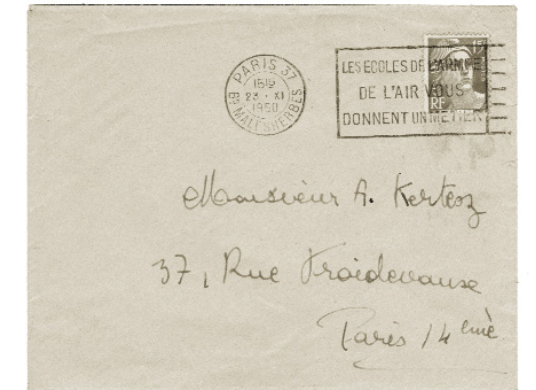 PARIS 37
1519
23 - XI
1950
Bd MALESHERBES
LES ECOLES DE L'ARMEE
DE L'AIR VOUS
DONNENT UN METIER
15F
RF
Monsieur A. Kertesz
37, Rue Froidevaux
Paris 14 eme